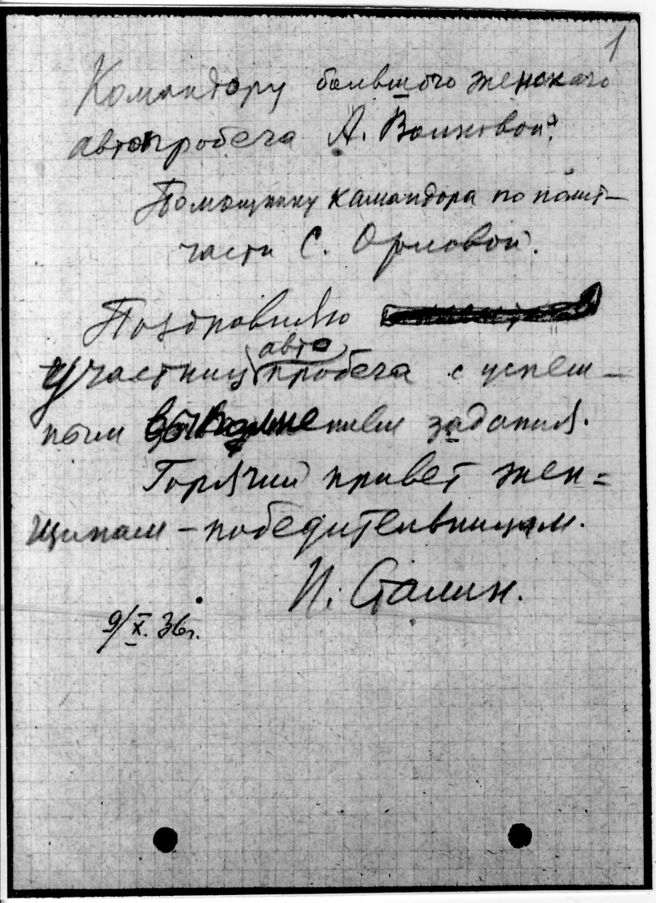 1
Командору большого женского
автопробега А. Волковой.
Помощнику командора по полит-
части С. Орловой.
Поздравляю
участниц автопробега с успеш-
ным выполнением задания.
Горячий привет жен=
щинам - победительницам.
И. Сталин.
9/X. 36г.